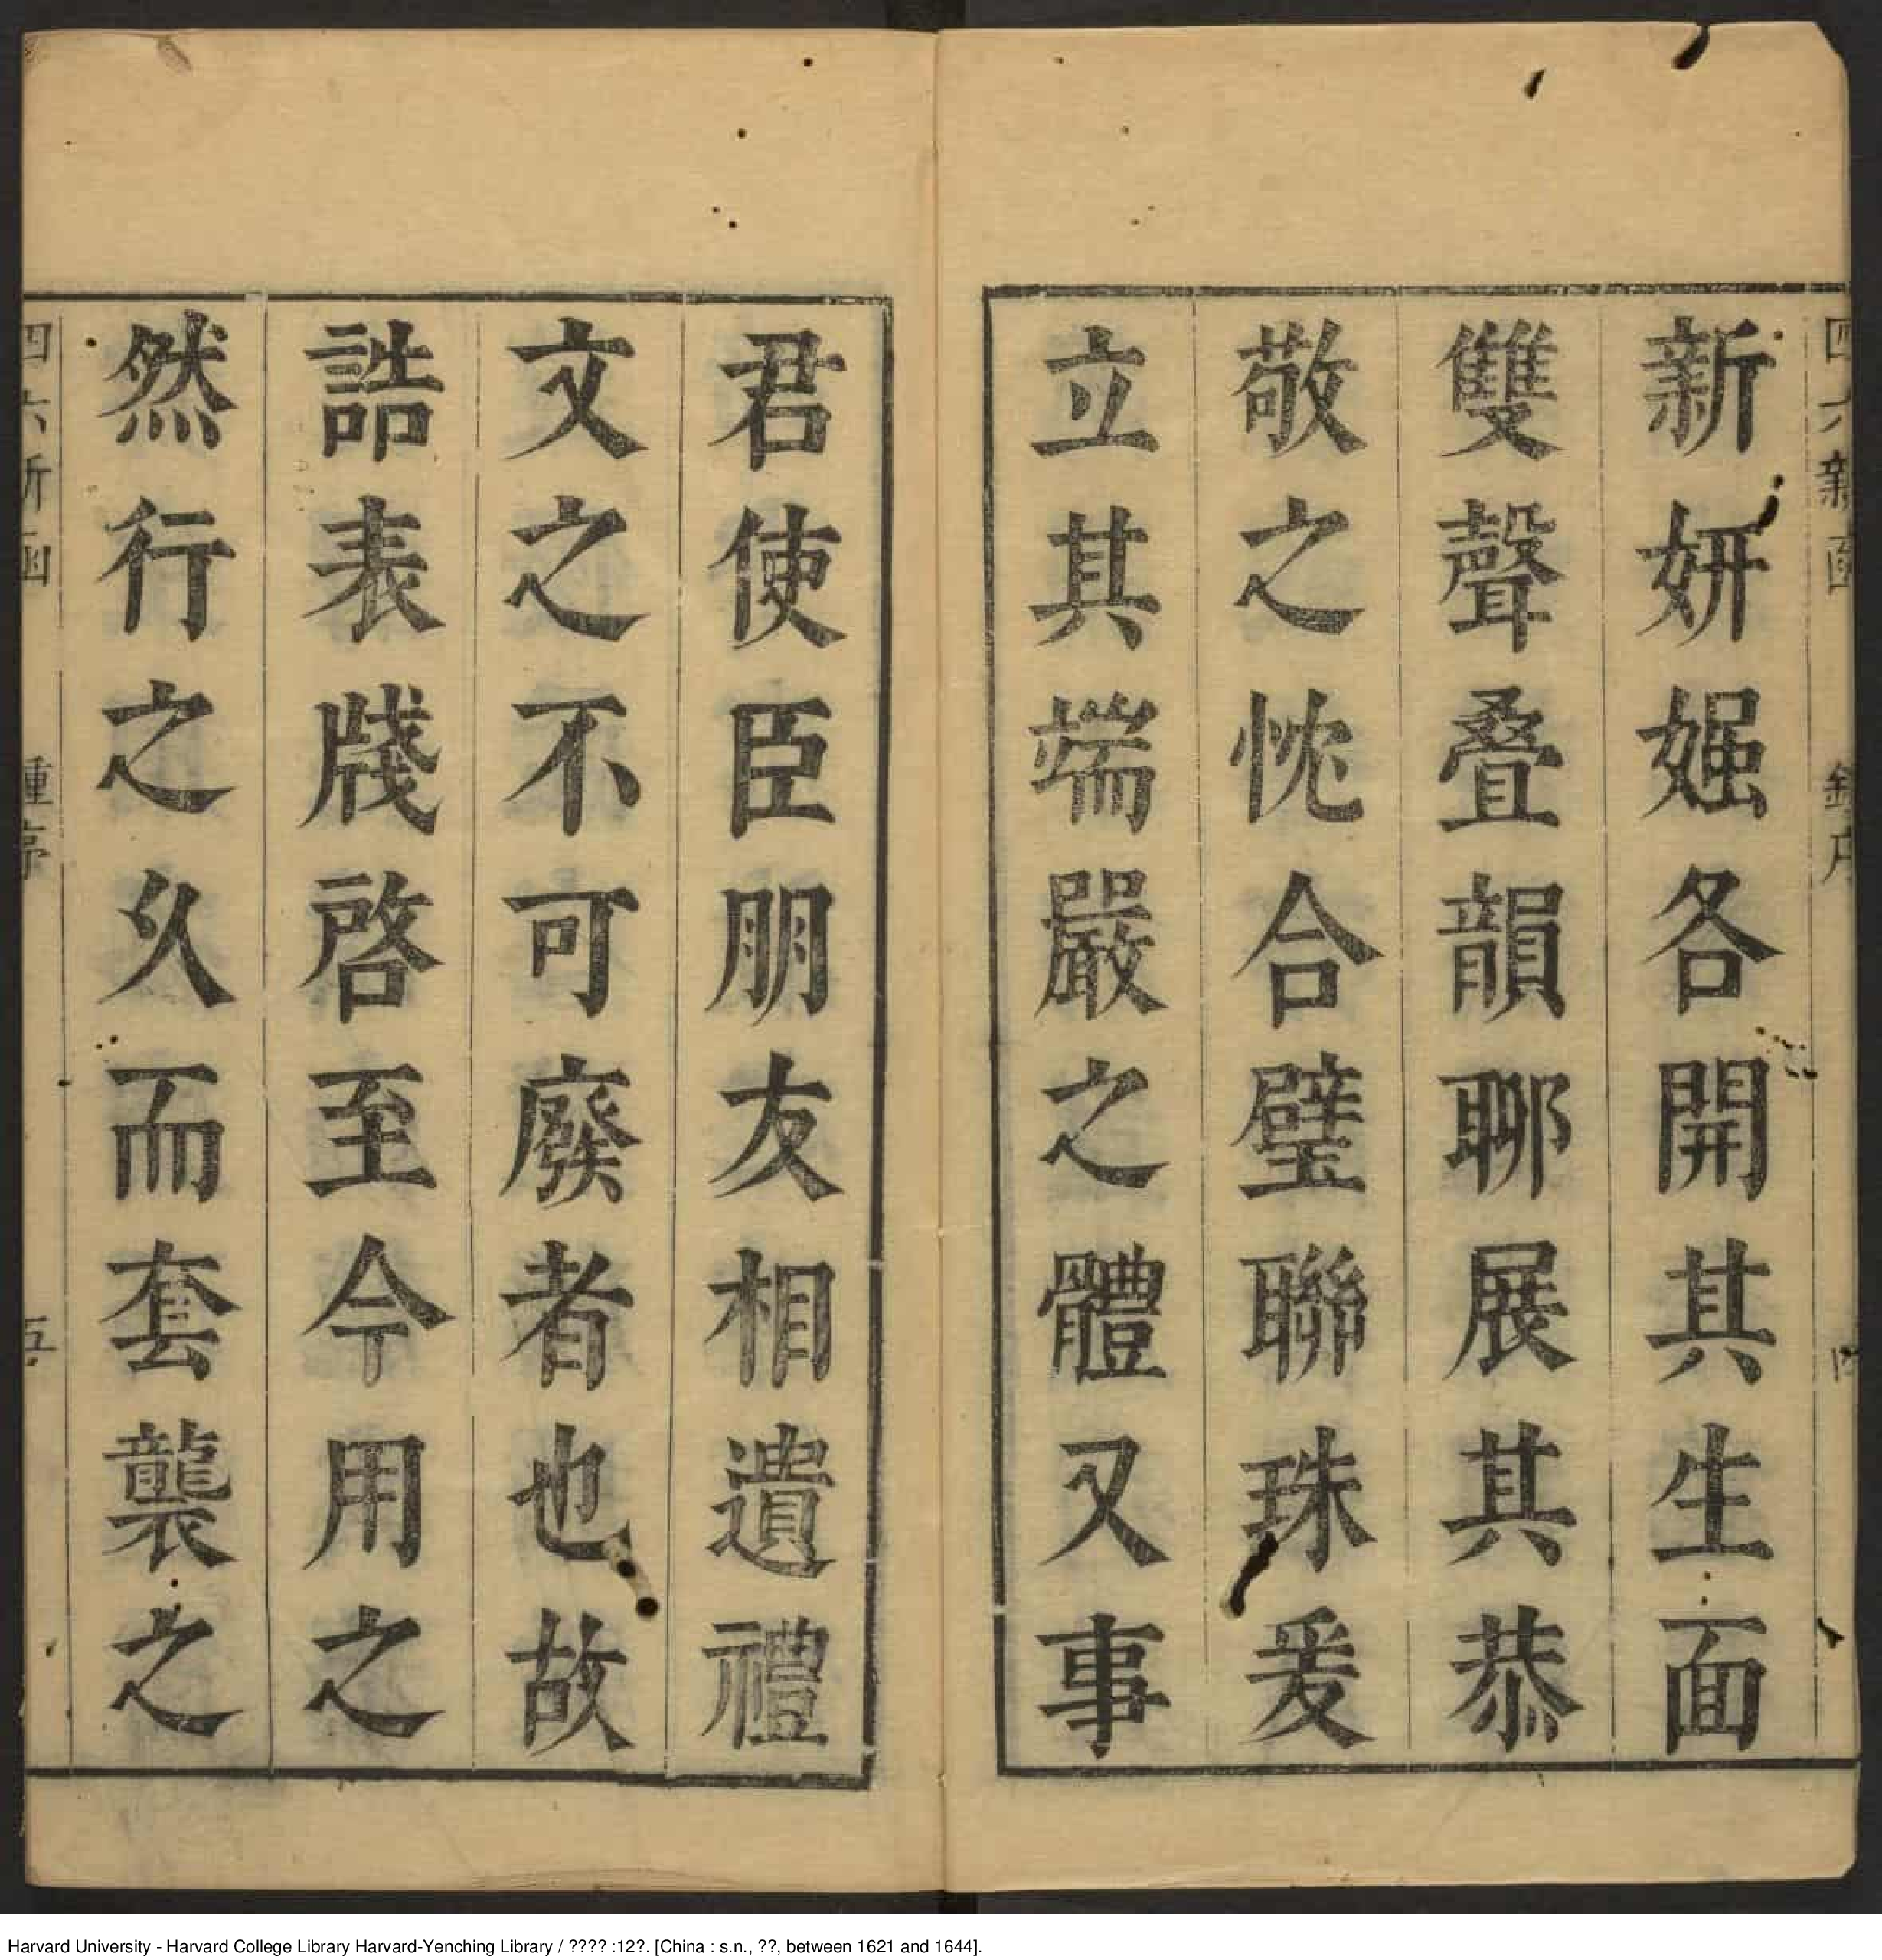 新妍嫐各開其生面
雙聲疊韻聊展其恭
敬之忱合璧聯珠爰
立其端嚴之體又事
君使臣朋友相遺禮
文之不可廢者也故
誥表牋啓至今用之
然行之久而套襲之
四六新函
五
Harvard University - Harvard College Library Harvard-Yenching Library / ???? :12?. [China : s.n., ??, between 1621 and 1644].